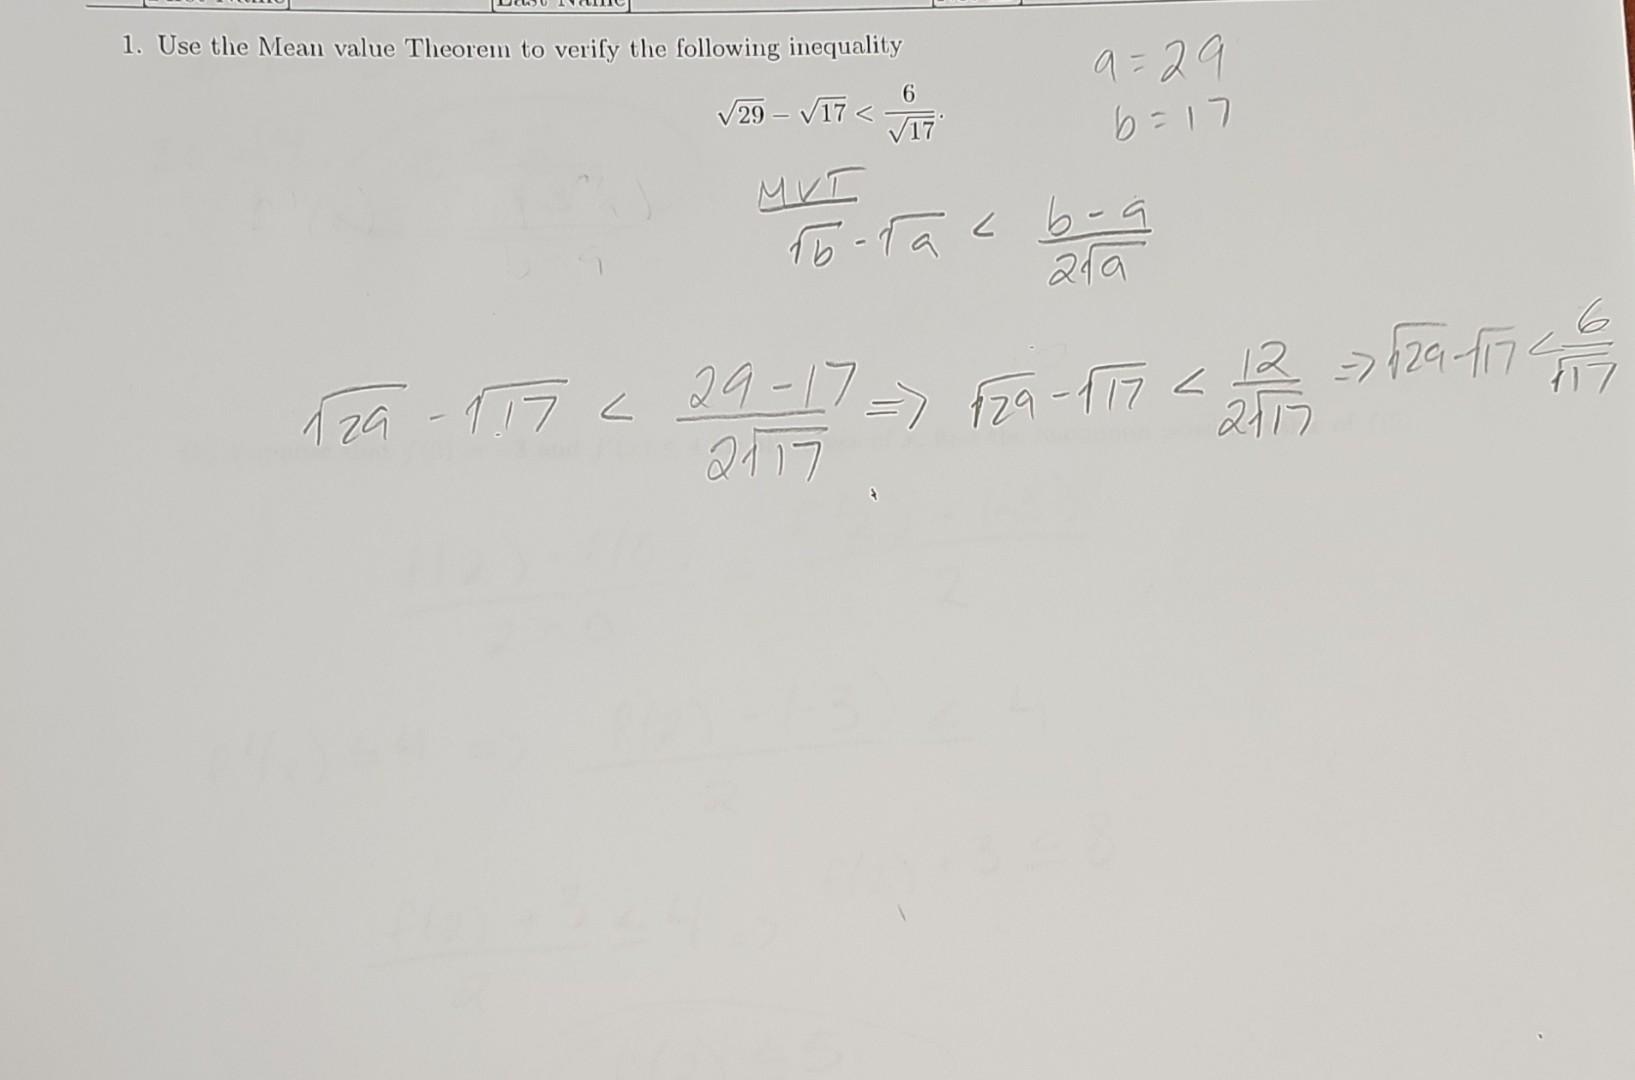 1. Use the Mean value Theorem to verify the following inequality
√29 − √17 < 6/√17.
a = 29
b = 17
MVT
√b - √a < (b - a)/(2√a)
√29 - √17 < (29 - 17)/(2√17) => √29 - √17 < 12/(2√17) => √29 - √17 < 6/√17